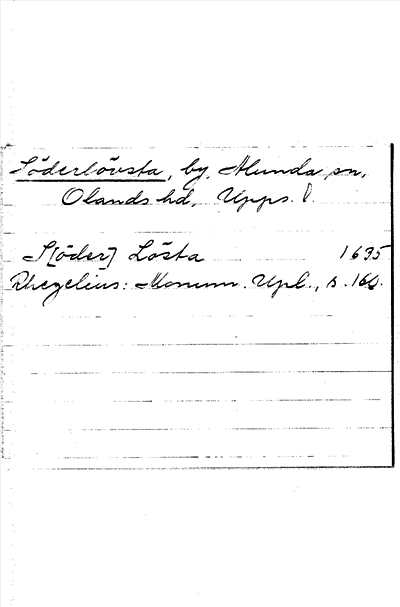 Söderlövsta, by, Alunda sn,
Olands hd, Upps. l.
S[öder] Lösta 1635
Rhezelius: Monum. Upl., s. 160.